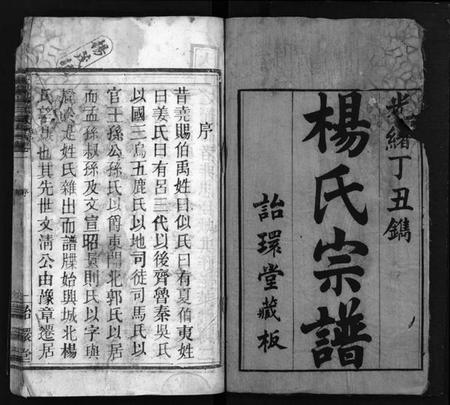 光緒丁丑鐫
楊氏宗譜
詒環堂藏板
序
昔堯賜伯禹姓曰姒氏曰有夏伯夷姓
曰姜氏曰有呂三代以後齊魯秦吳氏
以國三烏五鹿氏以地司徒司馬氏以
官王孫公孫氏以爵東門北郭氏以居
而孟孫叔孫及文宣昭景則氏以字與
諡於是姓氏雜出而譜牒始興城北楊
氏 也其先世文清公由豫章遷居
序
詒環堂